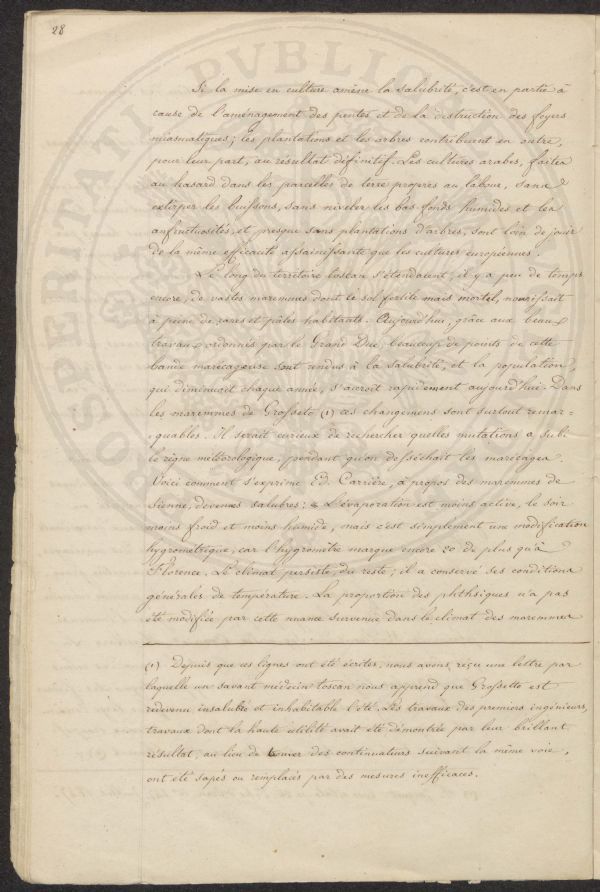 28
Si la mise en culture amène la salubrité, c'est en partie à
cause de l'aménagement des pentes et de la destruction des foyers
miasmatiques; les plantations et les arbres contribuent en outre,
pour leur part, au résultat définitif. Les cultures arabes, faites
au hasard dans les parcelles de terre propres au labour, sans
extirper les buissons, sans niveler les bas-fonds humides et les
anfractuosités, et presque sans plantations d'arbres, sont loin de jouir
de la même efficacité assainissante que les cultures européennes.
Le long du territoire toscan s'étendaient, il y a peu de temps
encore, de vastes maremmes dont le sol fertile mais mortel, nourissait
à peine de rares et pâles habitants. Aujourd'hui, grâce aux beaux
travaux ordonnés par le Grand Duc, beaucoup de points de cette
bande marécageuse sont rendus à la salubrité, et la population,
qui diminuait chaque année, s'accroit rapidement aujourd'hui. Dans
les maremmes de Grosseto (1) ces changemens sont surtout remar=
=quables. Il serait curieux de rechercher quelles mutations a subi
le règne météorologique, pendant qu'on desséchait les marécages.
Voici comment s'exprime Ed. Carrière, à propos des maremmes de
Sienne, devenues salubres: « L'évaporation est moins active, le soir
moins froid et moins humide, mais c'est simplement une modification
hygrométrique, car l'hygromètre marque encore 20 de plus qu'à
Florence. Le climat persiste, du reste; il a conservé ses conditions
générales de température. La proportion des phthisiques n'a pas
été modifiée par cette nuance survenue dans le climat des maremmes
(1) Depuis que ces lignes ont été écrites, nous avons reçu une lettre par
laquelle un savant médecin toscan nous apprend que Grossetto est
redevenu insalubre et inhabitable l'été. Les travaux des premiers ingénieurs,
travaux dont la haute utilité avait été démontrée par leur brillant
résultat, au lieu de trouver des continuateurs suivant la même voie,
ont été sapés ou remplacés par des mesures inefficaces.
PROSPERITATI PVBLICAE